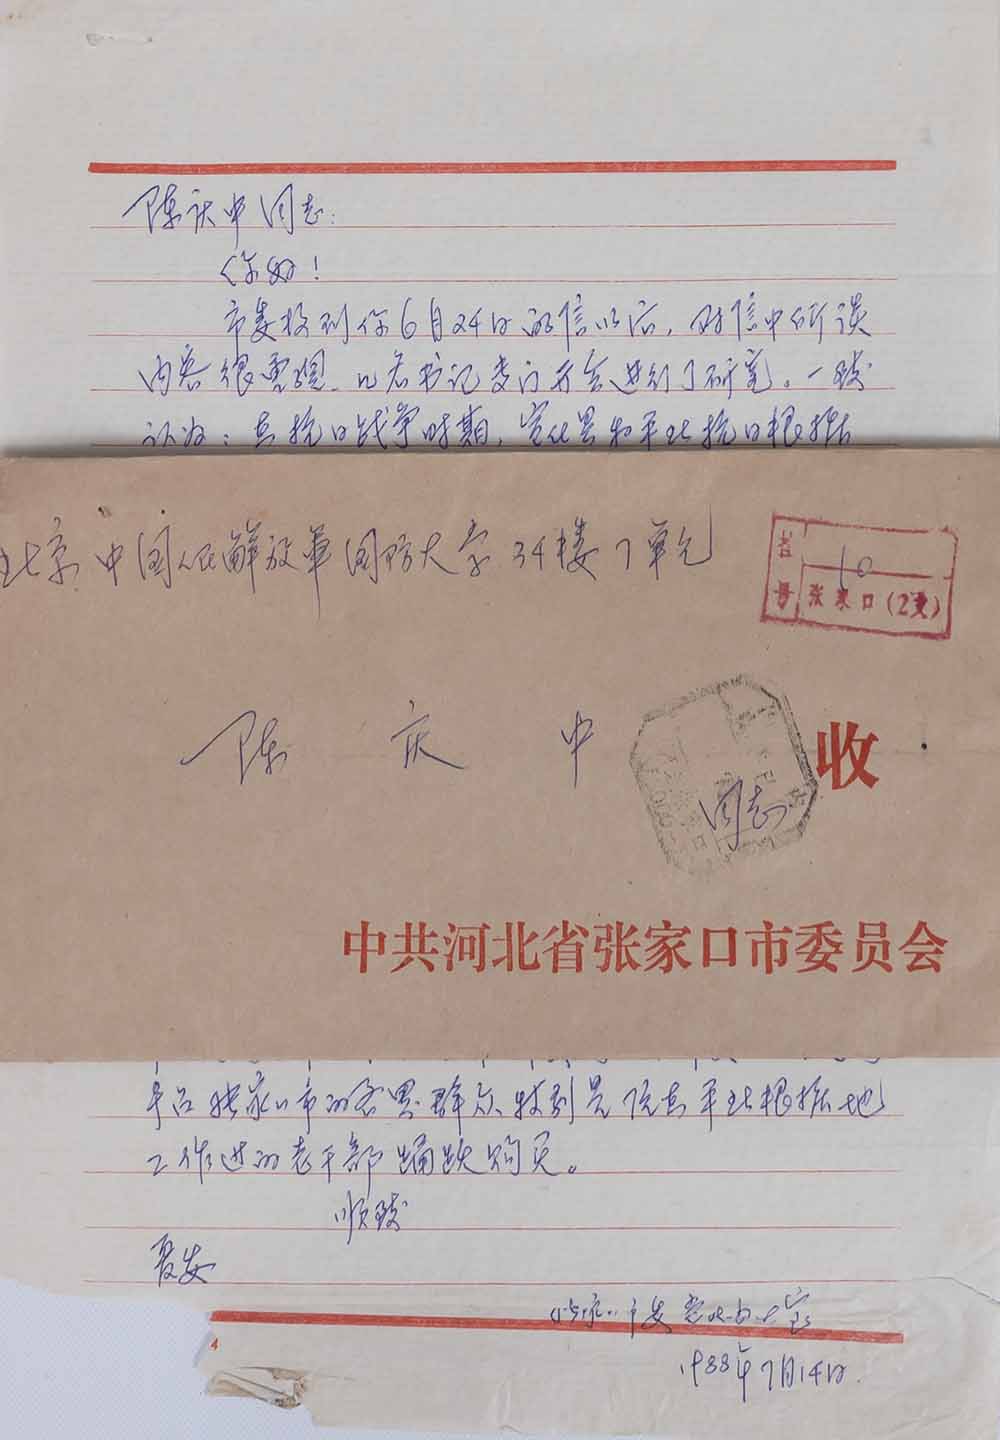 陈庆中同志:
你好!
市委接到你6月24日的信以后,对信中所谈
内容很重视,几名书记专门开会进行了研究。一致
认为:在抗日战争时期,宣化县和平北抗日根据
北京 中国人民解放軍国防大学 34楼7单元
10
号 张家口(2支)
陈 庆 中 收
同志
中共河北省张家口市委员会
张家口市的各界群众,特别是位在平北根据地
工作过的老干部踊跃购买。
顺致
夏安
4
1988年7月14日